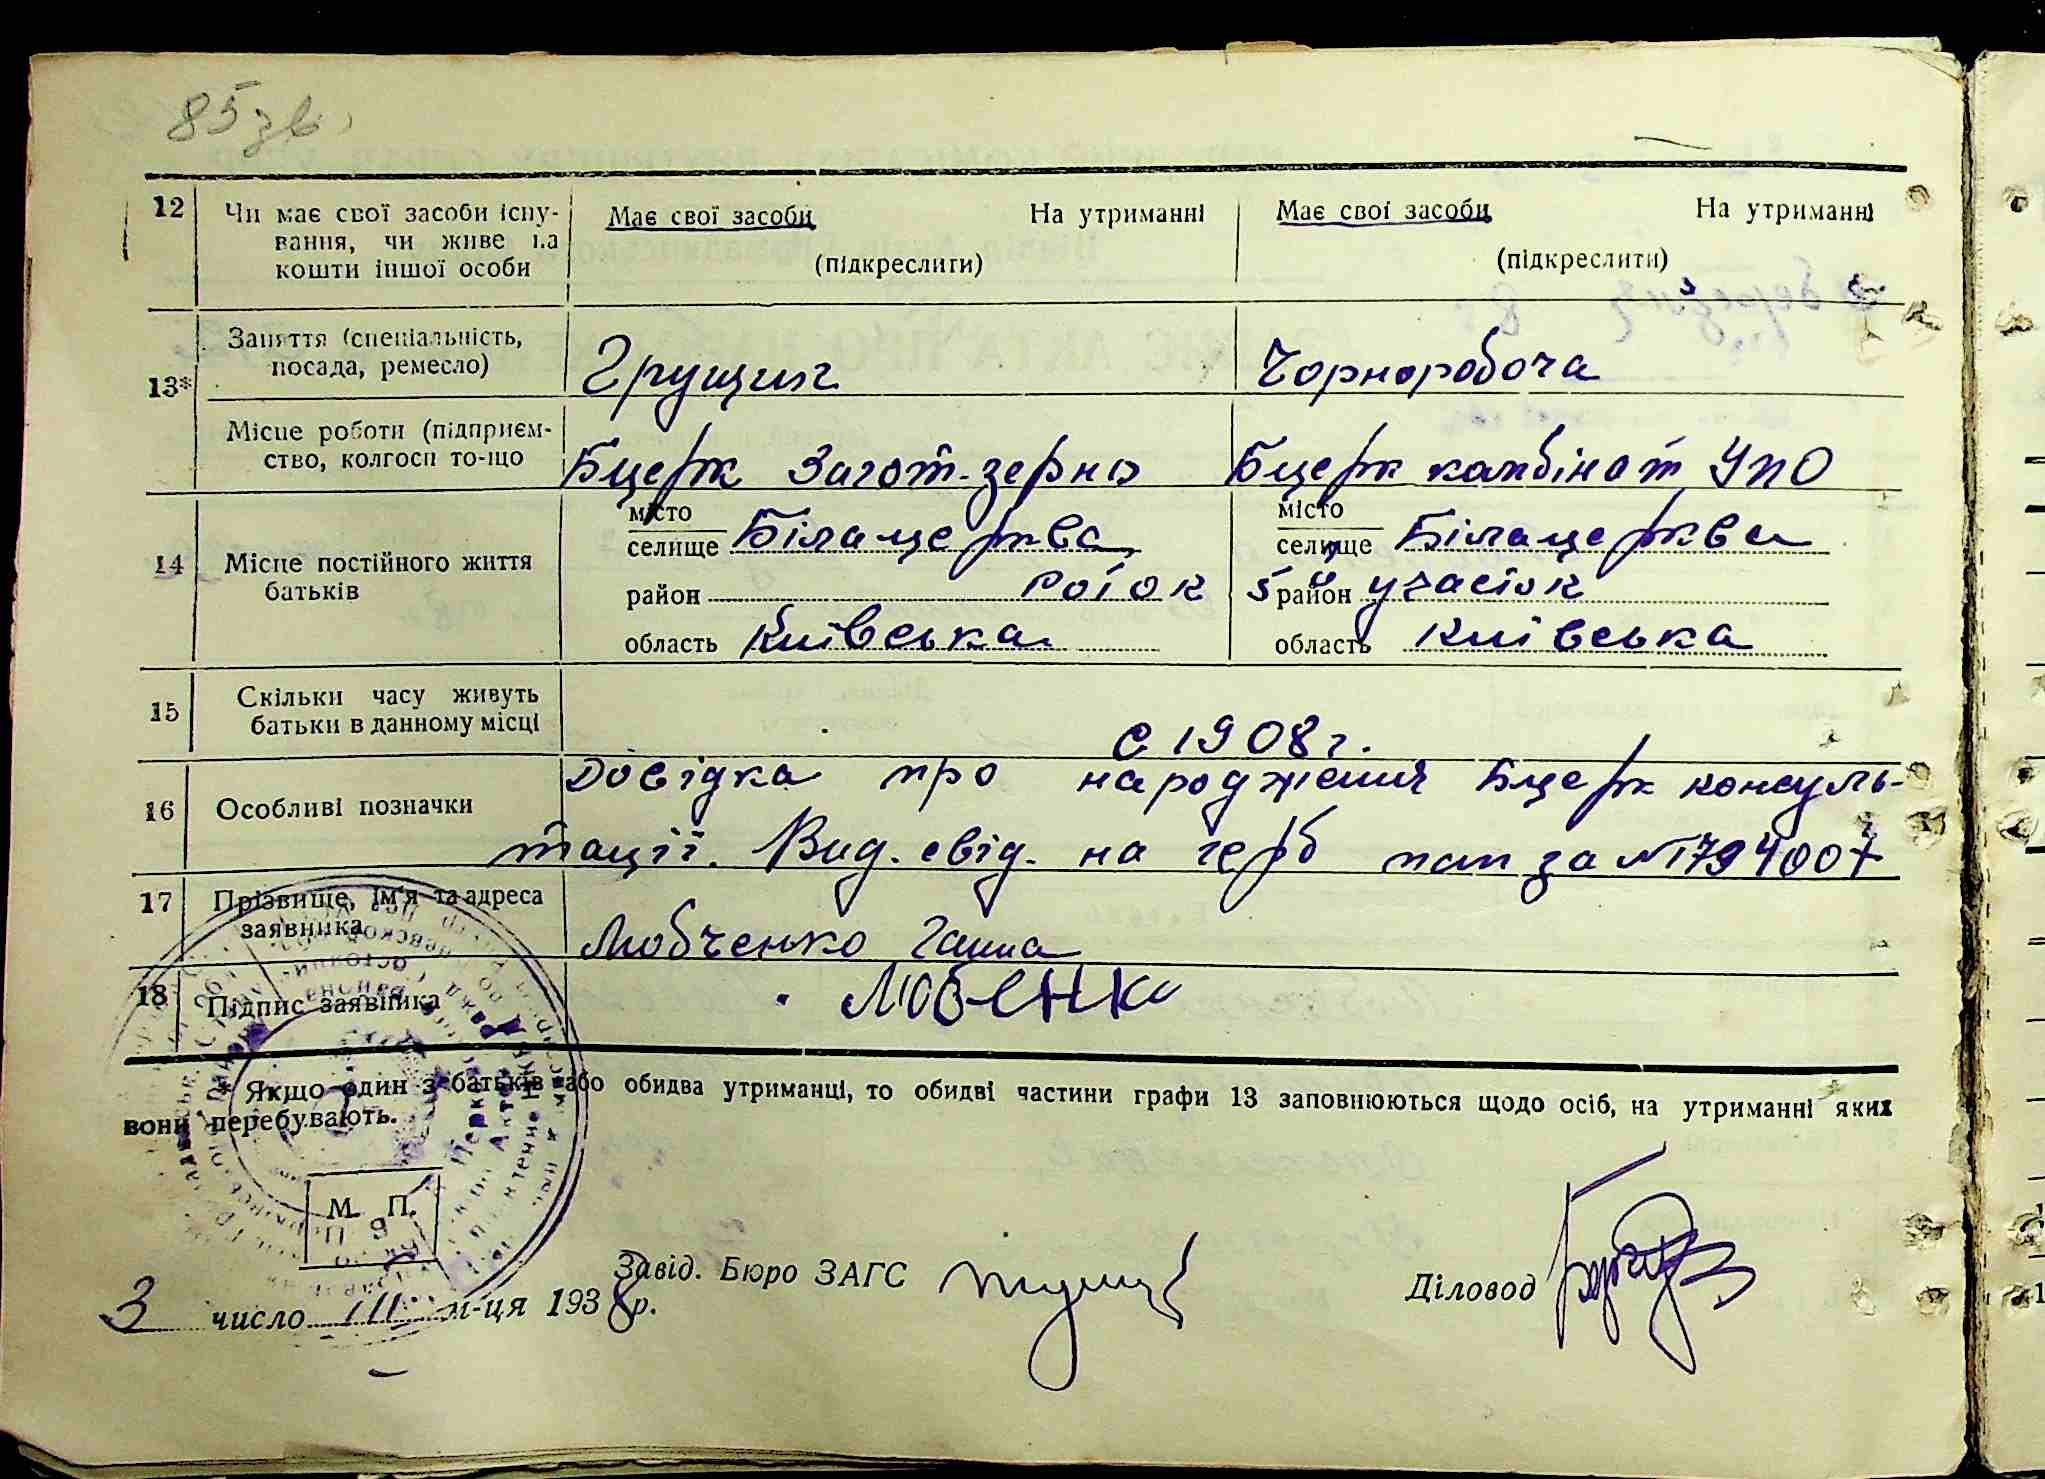 85 зв.
12 Чи має свої засоби існу- Має свої засоби На утриманні Має свої засоби На утриманні
вання, чи живе на
кошти іншої особи (підкреслити) (підкреслити)
Заняття (спеціальність,
посада, ремесло) Грущик Чорноробоча
13*
Місце роботи (підприєм-
ство, колгосп то-що Бцерк Загот-зерно Бцерк комбінат УПО
місто місто
селище Білацерква селище Білацерква
14 Місце постійного життя
батьків район район участок
область Київська область Київська
15 Скільки часу живуть
батьки в данному місці
с 1908 г.
Довідка про народження Бцерк консуль-
16 Особливі позначки
тації. Вид. свід. на герб пап за №1794007
17 Прізвище, ім'я та адреса
заявника Любченко Ганна
18 Підпис заявника Любенко
* Якщо один з батьків або обидва утриманці, то обидві частини графи 13 заповнюються щодо осіб, на утриманні яких
вони перебувають.
М. П.
Завід. Бюро ЗАГС Діловод
3 число III м-ця 1938 р.